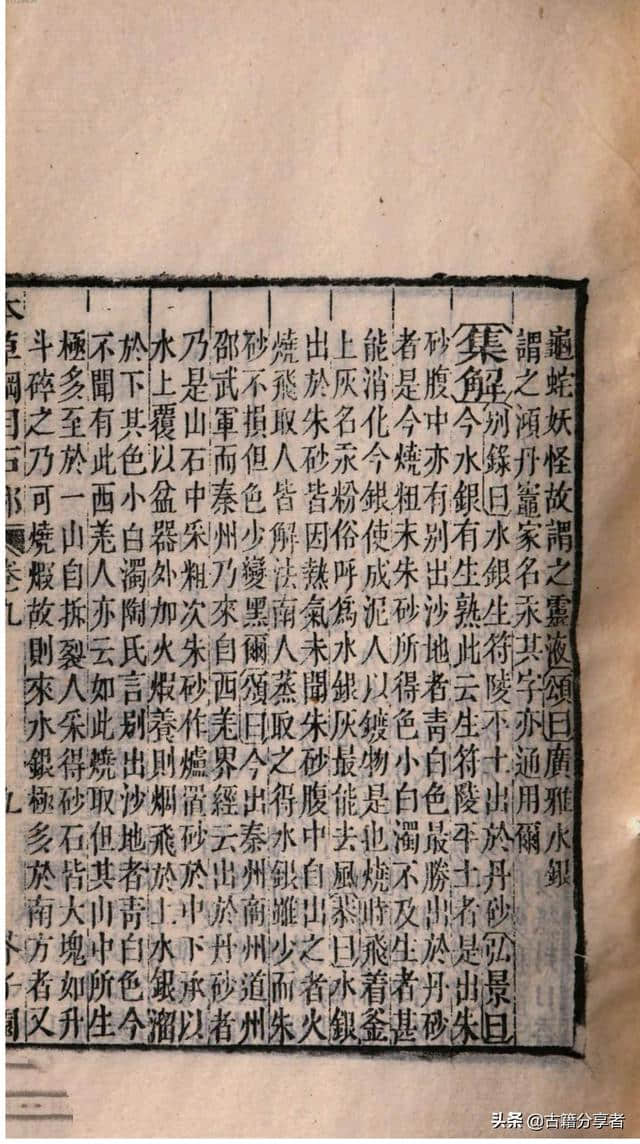 龜蛇妖怪故謂之靈液頌曰廣雅水銀
謂之澒丹竈家名汞其字亦通用爾
集解别錄曰水銀生符陵平土出於丹砂弘景曰
今水銀有生熟此云生符陵平土者是出朱
砂腹中亦有别出沙地者靑白色最勝出於丹砂
者是今燒粗末朱砂所得色小白濁不及生者甚
能消化今銀使成泥人以鍍物是也燒時飛着釜
上灰名汞粉俗呼爲水銀灰最能去風恭曰水銀
出於朱砂皆因熱氣未聞朱砂腹中自出之者火
燒飛取人皆解法南人蒸取之得水銀雖少而朱
砂不損但色少變黑爾頌曰今出秦州商州道州
邵武軍而秦州乃來自西羌界經云出於丹砂者
乃是山石中采粗次朱砂作爐置砂於中下承以
水上覆以盆器外加火煅養則烟飛於上水銀溜
於下其色小白濁陶氏言别出沙地者靑白色今
不聞有此西羌人亦云如此燒取但其山中所生
極多至於一山自拆裂人采得砂石皆大塊如升
斗碎之乃可燒煆故則來水銀極多於南方者又
本草綱目石部 卷九 九 芥子園
头条 @古籍分享者